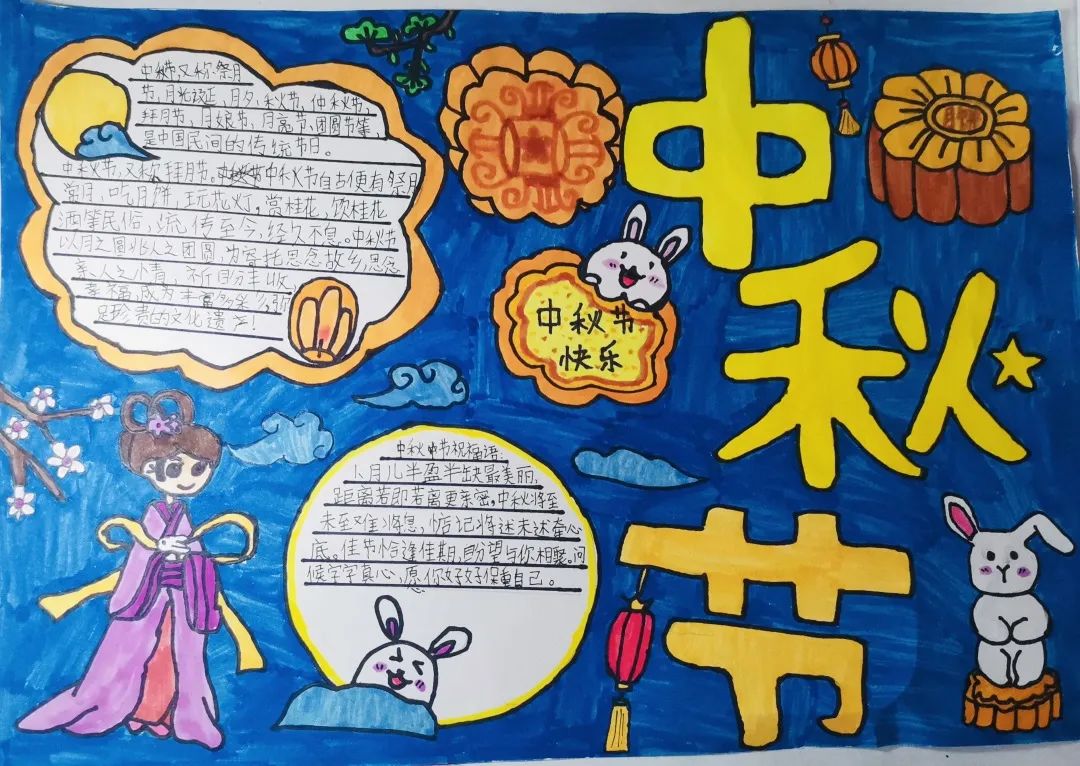 中秋节,又称祭月
节、月光诞、月夕、秋节、仲秋节、
拜月节、月娘节、月亮节、团圆节等,
是中国民间的传统节日。
中秋节,又称拜月节。中秋节自古便有祭月
赏月、吃月饼、玩花灯、赏桂花、饮桂花
酒等民俗,流传至今,经久不息。中秋节
以月之圆兆人之团圆,为寄托思念故乡,思念
亲人之情,祈盼丰收、
幸福,成为丰富多彩、弥
足珍贵的文化遗产!
中秋节
快乐
中秋节
中秋节祝福语:
月儿半盈半缺最美丽,
距离若即若离更亲密,中秋将至
未至难将息,惦记将述未述牵心
底。佳节恰逢佳期,盼望与你相聚。问
候字字真心,愿你好好保重自己。